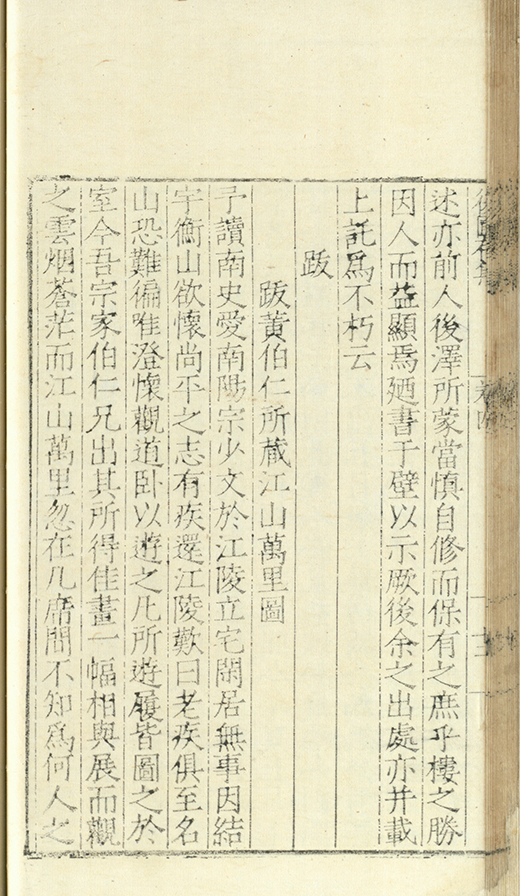 卷四
述亦前人後澤所蒙當慎自修而保有之庶乎樓之勝
因人而益顯焉廼書于壁以示厥後余之出處亦并載
上託爲不朽云
跋
跋黃伯仁所藏江山萬里圖
予讀南史愛南陽宗少文於江陵立宅閑居無事因結
宇衡山欲懷尚平之志有疾還江陵歎曰老疾俱至名
山恐難徧唯澄懷觀道卧以遊之凡所遊履皆圖之於
室今吾宗家伯仁兄出其所得佳畫一幅相與展而觀
之雲烟蒼茫而江山萬里忽在几席間不知爲何人之